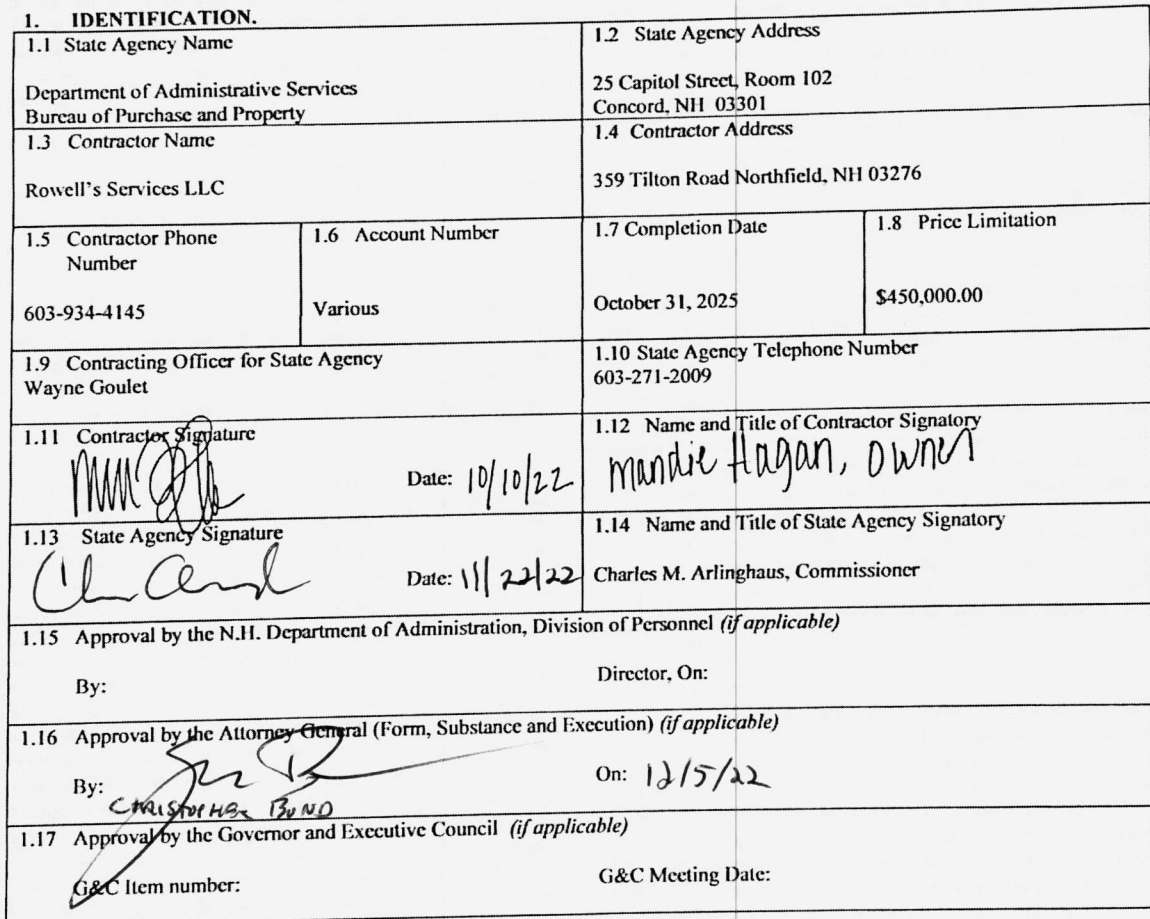 1. IDENTIFICATION.
1.1 State Agency Name
Department of Administrative Services
Bureau of Purchase and Property
1.2 State Agency Address
25 Capitol Street, Room 102
Concord, NH 03301
1.3 Contractor Name
Rowell's Services LLC
1.4 Contractor Address
359 Tilton Road Northfield, NH 03276
1.5 Contractor Phone
Number
603-934-4145
1.6 Account Number
Various
1.7 Completion Date
October 31, 2025
1.8 Price Limitation
$450,000.00
1.9 Contracting Officer for State Agency
Wayne Goulet
1.10 State Agency Telephone Number
603-271-2009
1.11 Contractor Signature
Date: 10/10/22
1.12 Name and Title of Contractor Signatory
Mandie Hagan, owner
1.13 State Agency Signature
Date: 11/22/22
1.14 Name and Title of State Agency Signatory
Charles M. Arlinghaus, Commissioner
1.15 Approval by the N.H. Department of Administration, Division of Personnel (if applicable)
By:
Director, On:
1.16 Approval by the Attorney General (Form, Substance and Execution) (if applicable)
By:
CHRISTOPHER BOND
On: 12/5/22
1.17 Approval by the Governor and Executive Council (if applicable)
G&C Item number:
G&C Meeting Date: